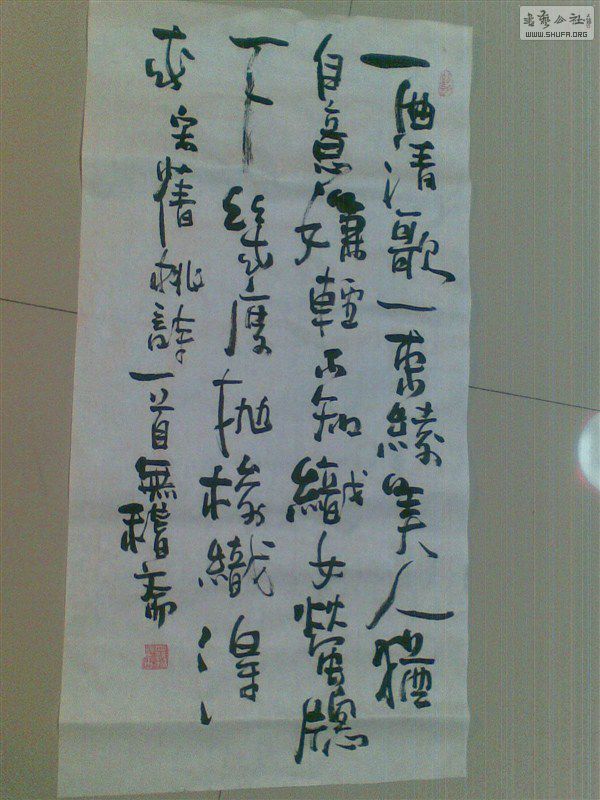 一曲清歌一束綾美人猶
自意嫌輕不知織女螢牕
下幾度拋梭織得
成宋蒨桃詩一首無稽齋
書藝公社
WWW.SHUFA.ORG